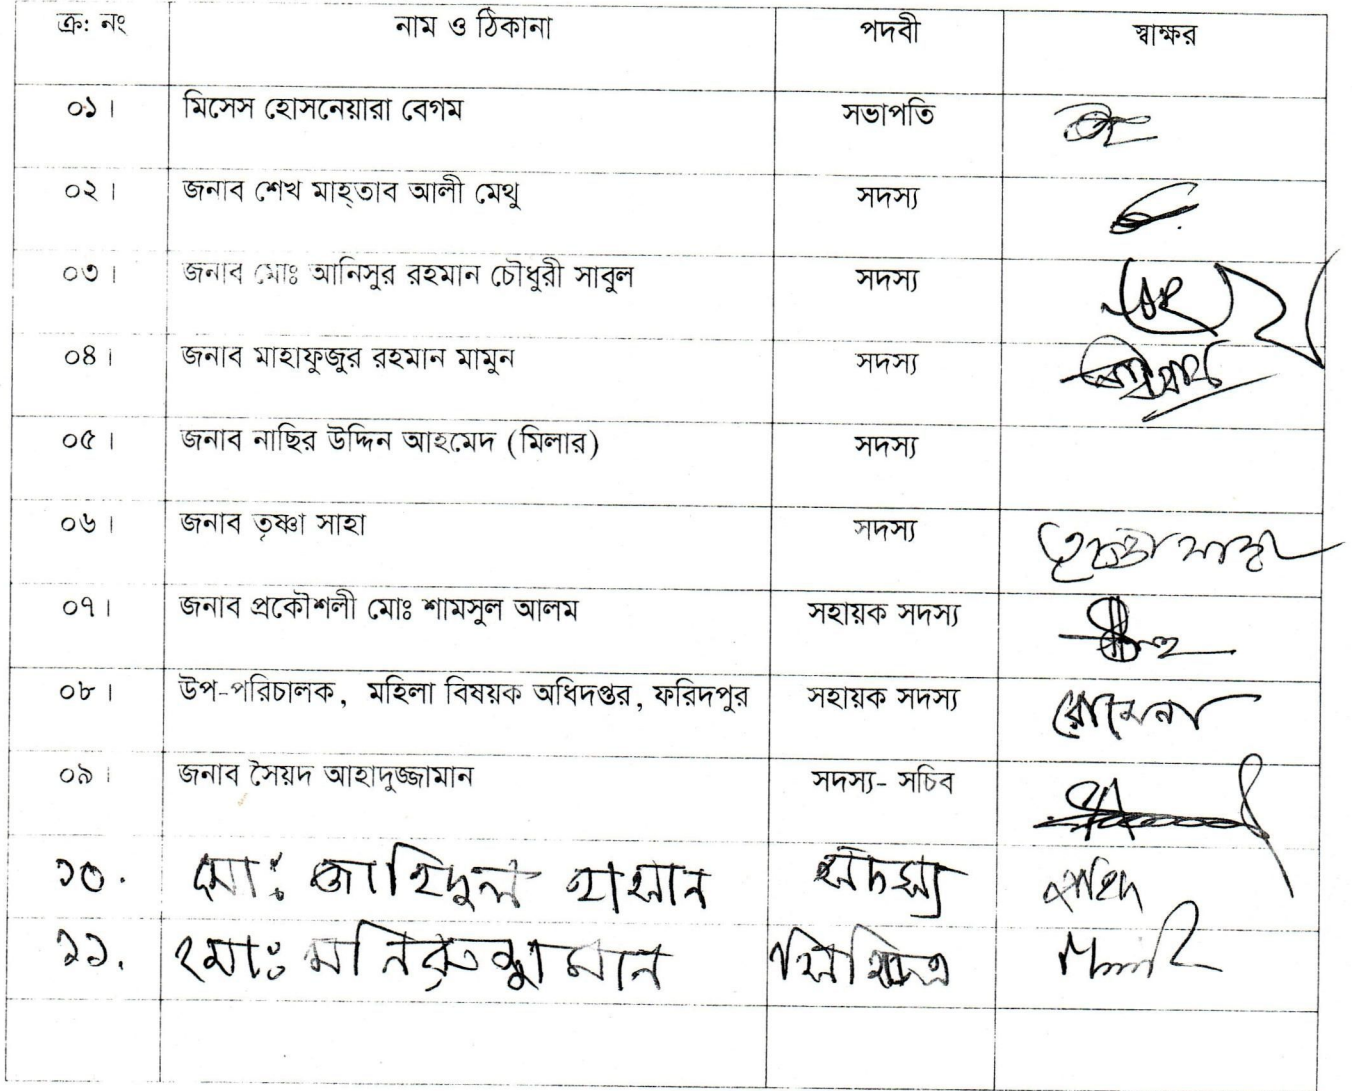 ক্র: নং নাম ও ঠিকানা পদবী স্বাক্ষর
০১। মিসেস হোসনেয়ারা বেগম সভাপতি
০২। জনাব শেখ মাহ্তাব আলী মেথু সদস্য
০৩। জনাব মোঃ আনিসুর রহমান চৌধুরী সাবুল সদস্য
০৪। জনাব মাহাফুজুর রহমান মামুন সদস্য
০৫। জনাব নাছির উদ্দিন আহমেদ (মিলার) সদস্য
০৬। জনাব তৃষ্ণা সাহা সদস্য তৃষ্ণা সাহা
০৭। জনাব প্রকৌশলী মোঃ শামসুল আলম সহায়ক সদস্য
০৮। উপ-পরিচালক, মহিলা বিষয়ক অধিদপ্তর, ফরিদপুর সহায়ক সদস্য রোমেনা
০৯। জনাব সৈয়দ আহাদুজ্জামান সদস্য- সচিব
১০. মোঃ জাহিদুল হাসান সদস্য
১১. মোঃ মনিরুজ্জামান